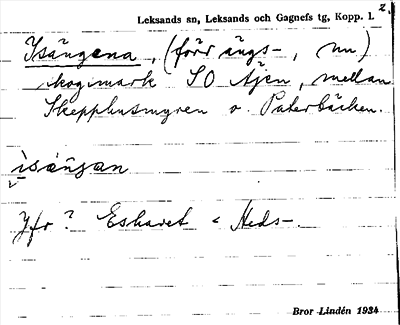 Leksands sn, Leksands och Gagnefs tg, Kopp. l. 2.
Isängena, (förr ängs-, nu)
skogsmark SO Åjen, mellan
Skepphusmyren o. Paterbäcken.
isängan
Jfr ? Eshavet < Heds-.
Bror Lindén 1934